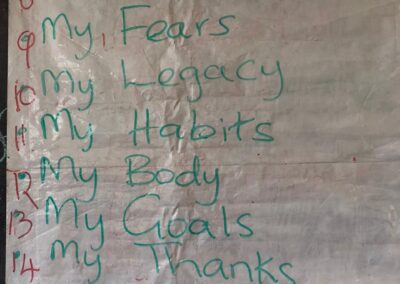 9 My Fears
10 My Legacy
11 My Habits
12 My Body
13 My Goals
14 My Thanks